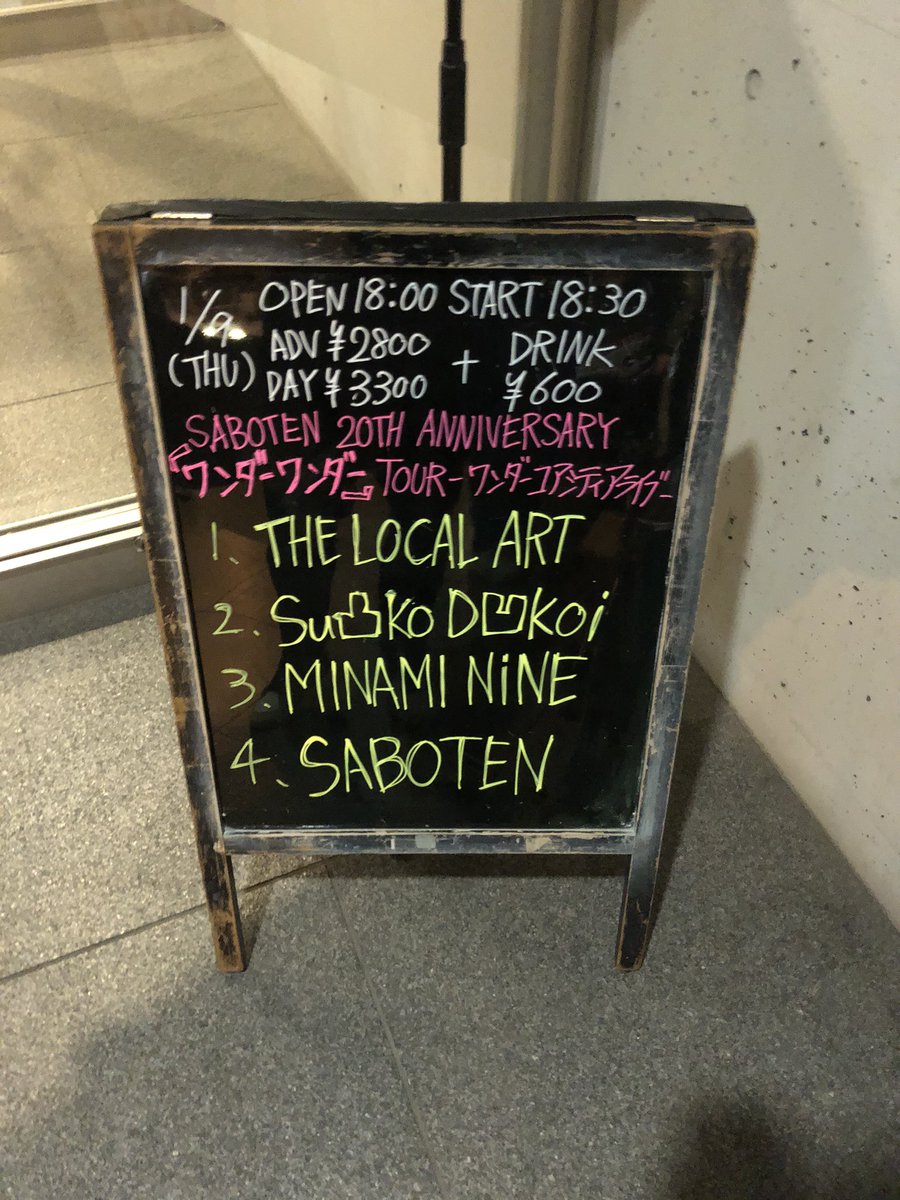 1/9 (THU)
OPEN 18:00 START 18:30
ADV ¥2800 + DRINK
DAY ¥3300 ¥600
SABOTEN 20TH ANNIVERSARY
『ワンダーワンダー』TOUR-ワンダーユアシティアライブ-
1、THE LOCAL ART
2. Su凸ko D凹koi
3. MINAMI NiNE
4、SABOTEN